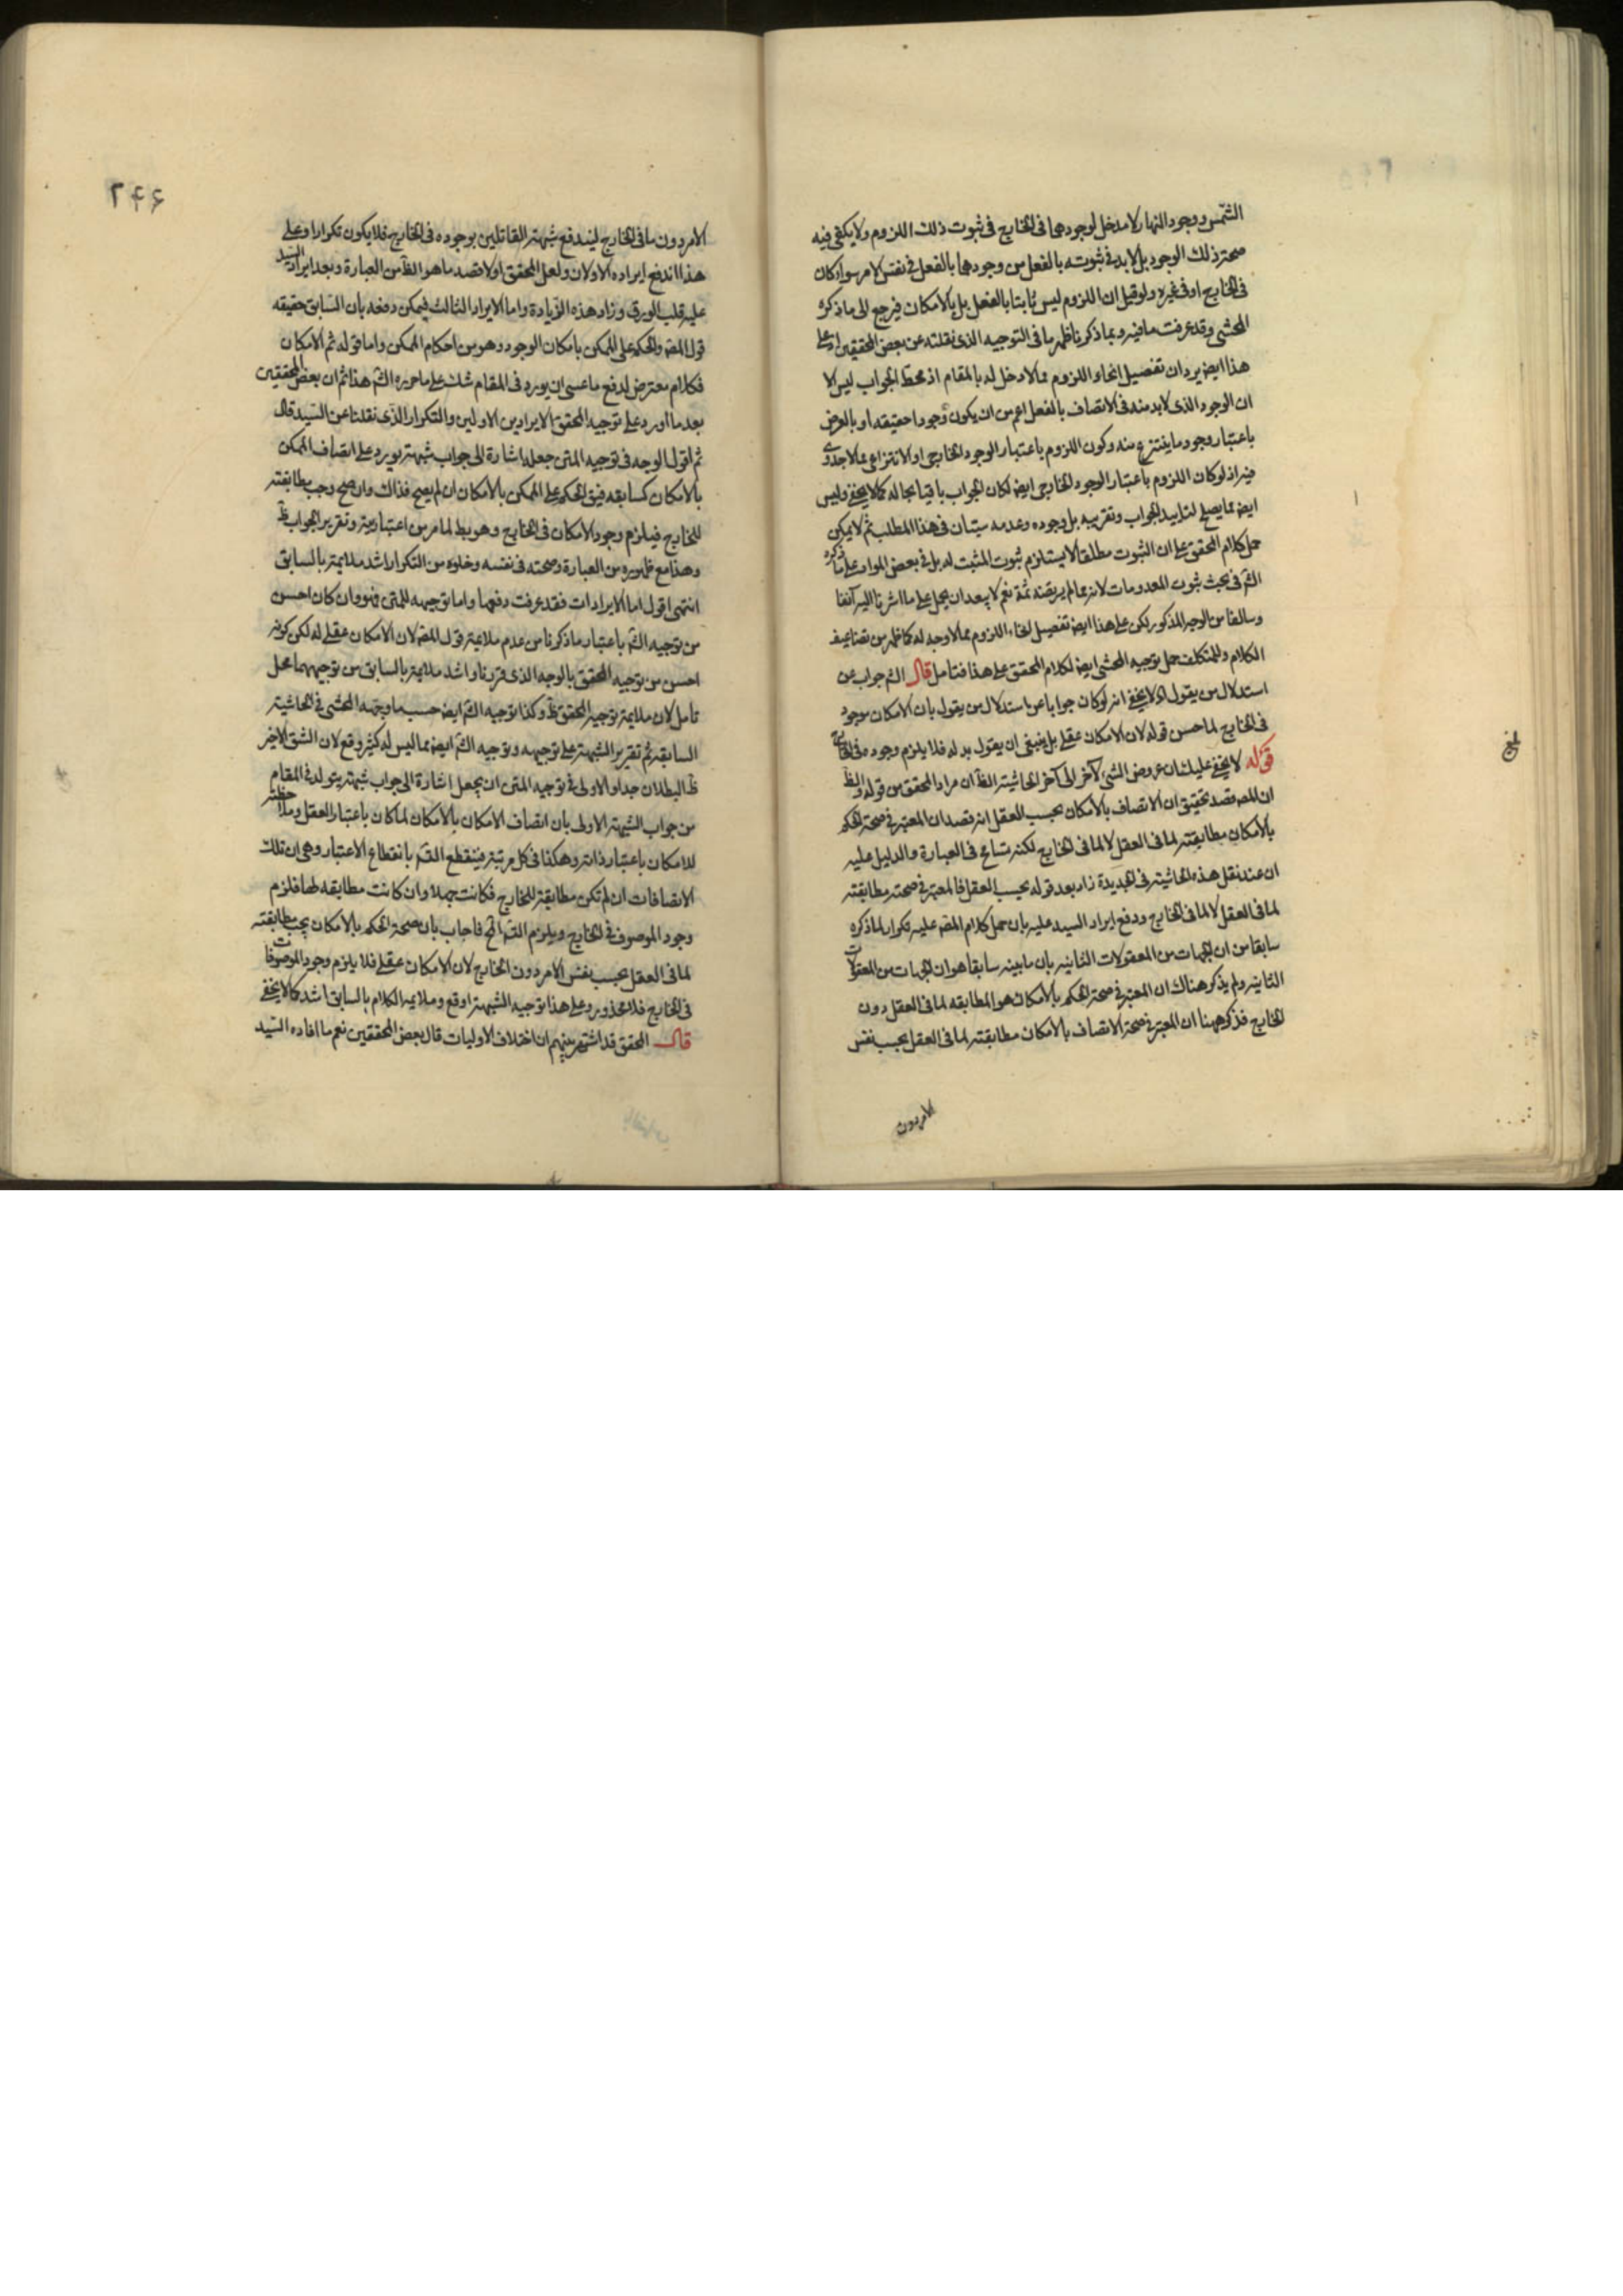 الشمس ووجود النهار لا مدخل لوجودهما فى الخارج فى ثبوت ذلك اللزوم ولا يكفى فيه
صحة ذلك الوجود بل لابد فى ثبوته بالفعل من وجودهما بالفعل فى نفس الامر سواء كان
فى الخارج او فى غيره ولو قيل ان اللزوم ليس ثابتا بالفعل بل بالامكان فيرجع الى ما ذكره
المحشى وقد عرفت ما فيه وبما ذكرنا ظهر ما فى التوجيه الذى نقلته عن بعض المحققين اذ على
هذا ايضا يرد ان تفصيل انحاء اللزوم مما لا دخل له بالمقام اذ محط الجواب ليس الا
ان الوجود الذى لابد منه فى الاتصاف بالفعل اعم من ان يكون وجودا حقيقة او بالعرض
باعتبار وجود ما ينتزع منه وكون اللزوم باعتبار الوجود الخارجى او الانتزاعى مما لا جدوى
فيه اذ لو كان اللزوم باعتبار الوجود الخارجى ايضا لكان الجواب باقيا بحاله كما لا يخفى وليس
ايضا مما يصلح لتاييد الجواب وتقريبه بل وجوده وعدمه سيّان فى هذا المطلب ثم لا يمكن
حمل كلام المحقق على ان الثبوت مطلقا لا يستلزم ثبوت المثبت له بل فى بعض المواد على ما ذكره
الشّ فى بحث ثبوت المعدومات لانه مما لم يرتضه ثمة نعم لا يبعد ان يحمل على ما اشرنا اليه آنفا
وسالفا من الوجه المذكور لكن على هذا ايضا تفصيل انحاء اللزوم مما لا وجه له كما ظهر من تضاعيف
الكلام وللمتكلف حمل توجيه المحشى ايضا لكلام المحقق على هذا فتامل قال الشّ جواب عن
استدلال من يقول اه لا يخفى انه لو كان جوابا عن استدلال من يقول بان الامكان موجود
فى الخارج لما حسن قوله لان الامكان عقلى بل ينبغى ان يقول بدله فلا يلزم وجوده فى الخارج
قوله لا يخفى عليك ان عروض الشئ لآخر الى آخر الحاشية الظّ ان مراد المحقق من قوله والظّ
ان المصّ قصد تحقيق ان الاتصاف بالامكان بحسب العقل انه قصد ان المعتبر فى صحة الحكم
بالامكان مطابقته لما فى العقل لا لما فى الخارج لكنه تسامح فى العبارة والدليل عليه
ان عند نقل هذه الحاشية فى الجديدة زاد بعد قوله بحسب العقل فالمعتبر فى صحته مطابقته
لما فى العقل لا لما فى الخارج ودفع ايراد السيد عليه بان حمل كلام المصّ عليه تكرار لما ذكره
سابقا من ان الجهات من المعقولات الثانية بان ما بينه سابقا هو ان الجهات من المعقولات
الثانية ولم يذكر هناك ان المعتبر فى صحة الحكم بالامكان هو المطابقة لما فى العقل دون
الخارج فذكر ههنا ان المعتبر فى صحة الاتصاف بالامكان مطابقته لما فى العقل بحسب نفس
الامر دون
٢۴۶
الامر دون ما فى الخارج ليندفع شبهة القائلين بوجوده فى الخارج فلا يكون تكرارا وعلى
هذا اندفع ايراده الاولان ولعل المحقق اولا قصد ما هو الظّ من العبارة وبعد ايراد السّيد
عليه قلب الورق وزاد هذه الزيادة واما الايراد الثالث فيمكن دفعه بان السابق حقيقة
قول المصّ والحكم على الممكن بامكان الوجود وهو من احكام الممكن واما قوله ثم الامكان
فكلام معترض لدفع ما عسى ان يورد فى المقام شك على ما حرره الشّ هذا ثم ان بعض المحققين
بعد ما اورد على توجيه المحقق الايرادين الاولين والتكرار الذى نقلنا عن السّيد قال
ثم اقول الوجه فى توجيه المتن جعله اشارة الى جواب شبهة يورد على اتصاف الممكن
بالامكان كسابقه فيق الحكم على الممكن بالامكان ان لم يصح فذاك وان صح وجب مطابقته
للخارج فيلزم وجود الامكان فى الخارج وهو بط لما مر من اعتباريته وتقرير الجواب ظّ
وهذا مع ظهوره من العبارة وصحته فى نفسه وخلوه من التكرار اشد ملايمة بالسابق
انتهى اقول اما الايرادات فقد عرفت دفعها واما توجيهه للمتن فهو وان كان احسن
من توجيه الشّ باعتبار ما ذكرنا من عدم ملايمة قول المصّ لان الامكان عقلى له لكن كونه
احسن من توجيه المحقق بالوجه الذى قررنا واشد ملايمة بالسابق من توجيههما محل
تامل لان ملايمة توجيه المحقق ظّ وكذا توجيه الشّ ايضا حسب ما وجهه المحشى فى الحاشية
السابقة ثم تقرير الشبهة على توجيهه وتوجيه الشّ ايضا مما ليس له كثير وقع لان الشق الاخير
ظّ البطلان جدا والاولى فى توجيه المتن ان يجعل اشارة الى جواب شبهة يتولد فى المقام
من جواب الشبهة الاولى بان اتصاف الامكان بالامكان لما كان باعتبار العقل وملاحظته
للامكان باعتبار ذاته وهكذا فى كل مرتبة فينقطع التسّ بانقطاع الاعتبار وهى ان تلك
الاتصافات ان لم تكن مطابقة للخارج فكانت جهلا وان كانت مطابقه لها فلزم
وجود الموصوف فى الخارج ويلزم التسّ الخ فاجاب بان صحة الحكم بالامكان يجب مطابقته
لما فى العقل بحسب نفس الامر دون الخارج لان الامكان عقلى فلا يلزم وجود الموصوفات
فى الخارج فلا محذور وعلى هذا توجيه الشبهة اوقع وملايمة الكلام بالسابق اشد كما لا يخفى
قال المحقق قد اشتهر بينهم ان اختلاف الاوليات قال بعض المحققين نعم ما افاده السّيد